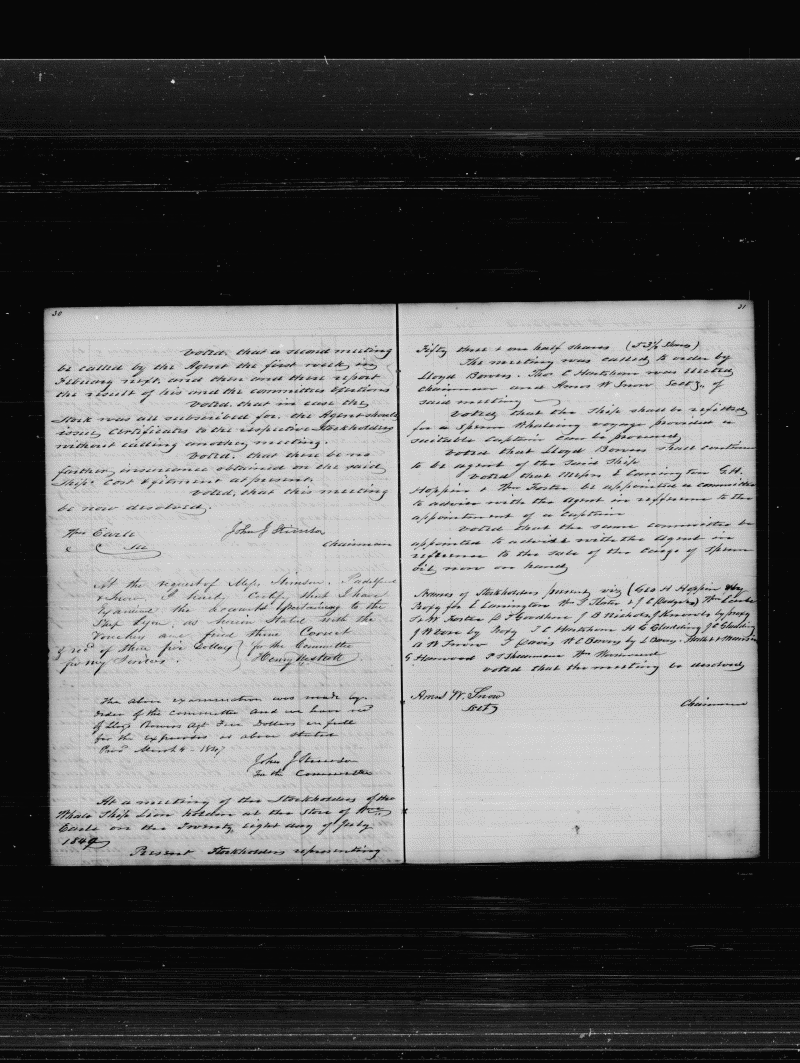 30
Voted, that a second meeting
be called by the Agent the first week in
February next, and then and there report
the result of his and the committee exertions
Voted, that in case the
Stock was all subscribed for, the Agent should
issue Certificates to the respective Stockholders
without calling another meeting.
Voted, that there be no
further insurance obtained on the said
Ship Cost & fitment at present.
Voted, that this meeting
be now desolved.
Wm Earle
Sec
John J Stimson
Chairman
At the request of Mess, Stimson, Padelford
& Snow, I hereby Certify that I have
Examined the accounts appertaining to the
Ship Lyon, as herein Stated with the
Vouchers and find them Correct
& recd of them five Dollars for the Committee
for my Services. Henry
The above examination was made by
order of the committee and we have recd
of Lloyd Bowers Agt Five Dollars in full
for the expenses as above stated
Prov March 4 - 1847
John J Stimson
For the Committee
At a meeting of the Stockholders of the
Whale Ship Lion holden at the Store of Wm
Earle on the Twenty eight day of July
1849
Present Stockholders representing
31
Fifty three & one half shares (53½ Shares)
The meeting was called to order by
Lloyd Bowers. Thos C Hartshorn was elected
chairman and Amos W Snow Secty, of
said meeting
Voted that the Ship shall be refitted
for a Sperm Whaleing voyage provided a
suitable Captain can be procured
Voted that Lloyd Bowers shall continue
to be agent of the said Ship
Voted that Messrs E Carrington G. H.
Hoppin & Wm Foster be appointed a committee
to advise with the Agent in refference to the
appointment of a Captain
Voted that the same committee be
appointed to advise with the Agent in
refference to the sale of the Cargo of Sperm
Oil now on hand
Names of Stockholders present viz (Geo H Hoppin
Proxy for E Carrington Wm F Foster & J C Rodgers) Wm Earle
Wm Foster J B Nichols J Knowles by proxy
J W by Proxy T C Hartshorn H C Gladding J C Gladding
A W Snow T Davis
G Harwood Wm
Voted that the meeting be desolved
Amos W. Snow
Secty
Chairman